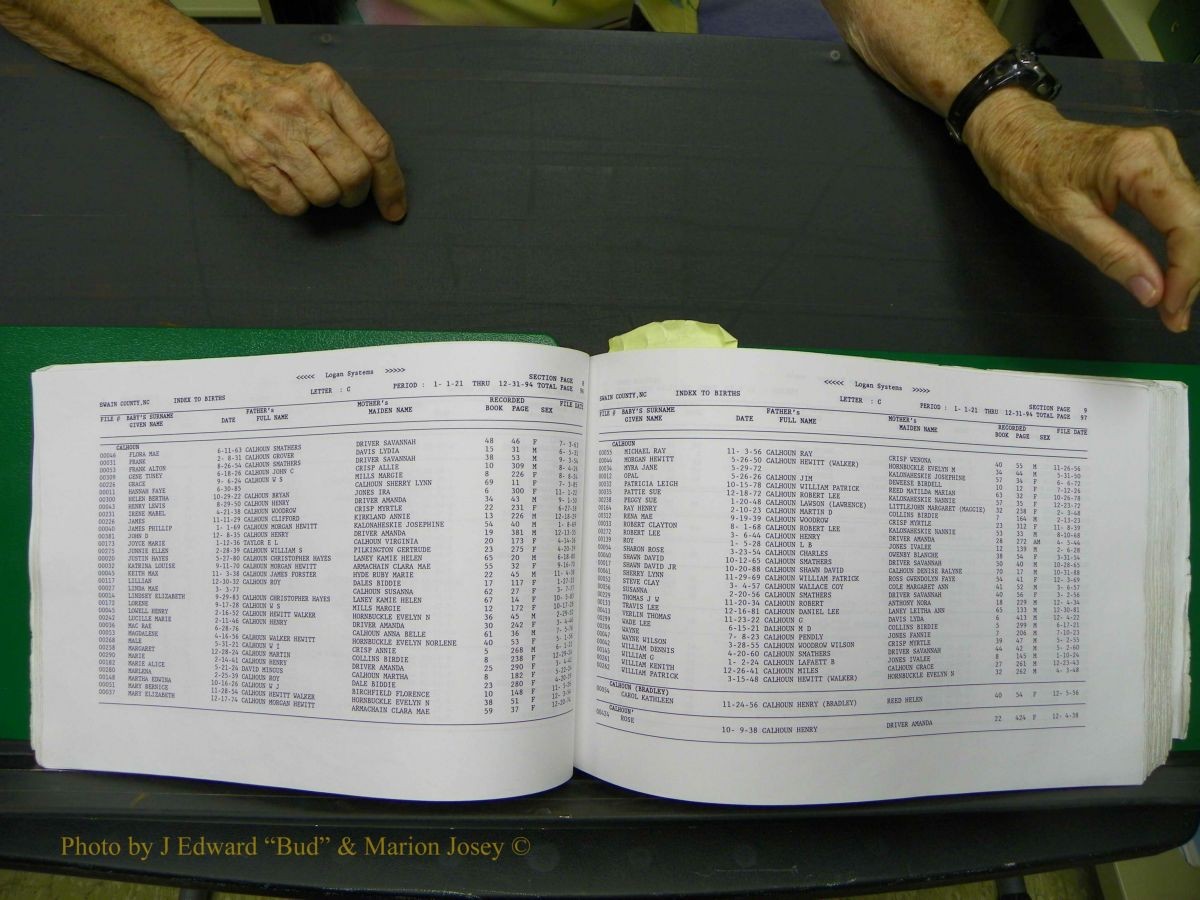 <<<<< Logan Systems >>>>>
SECTION PAGE 8
SWAIN COUNTY,NC INDEX TO BIRTHS LETTER : C PERIOD : 1- 1-21 THRU 12-31-94 TOTAL PAGE 96
FILE # BABY'S SURNAME FATHER's MOTHER's RECORDED FILE DATE
GIVEN NAME DATE FULL NAME MAIDEN NAME BOOK PAGE SEX
CALHOUN
00046 FLORA MAE 6-11-63 CALHOUN SMATHERS DRIVER SAVANNAH 48 46 F 7- 3-63
00031 FRANK 2- 8-31 CALHOUN GROVER DAVIS LYDIA 15 31 M
00053 FRANK ALTON 8-26-54 CALHOUN SMATHERS DRIVER SAVANNAH 38 53 M 9- 3-54
00309 GENE TUNEY 6-18-26 CALHOUN JOHN C CRISP ALLIE 10 309 M
00226 GRACE 9- 6-24 CALHOUN W S MILLS MARGIE 8 226 F
00011 HANNAH FAYE 6-30-85 CALHOUN SHERLY LYNN 69 11 F
00300 HELEN BERTHA 10-29-22 CALHOUN BRYAN JONES IRA 6 300 F
00043 HENRY LEWIS 8-29-50 CALHOUN HENRY DRIVER AMANDA 34 43 M
00231 IRENE MABEL 6-21-38 CALHOUN WOODROW CRISP MYRTLE 22 231 F
00226 JAMES 11-11-29 CALHOUN CLIFFORD KIRKLAND ANNIE 13 226 M
00040 JAMES PHILLIP 1- 1-69 CALHOUN MORGAN HEWITT KALONAHESKIE JOSEPHINE 54 40 M
00381 JOHN D 12- 8-35 CALHOUN HENRY DRIVER AMANDA 19 381 M
00173 JOYCE MARIE 1-12-36 TAYLOR E L CALHOUN VIRGINIA 20 173 F
00275 JUNNIE ELLEN 2-28-39 CALHOUN WILLIAM S PILKINGTON GERTRUDE 23 275 F
00020 JUSTIN HAYES 5-27-80 CALHOUN CHRISTOPHER HAYES LANEY KAMIE HELEN 65 20 M
00032 KATRINA LOUISE 9-11-70 CALHOUN MORGAN HEWITT ARMACHAIN CLARA MAE 55 32 F
00045 KEITH MAX 11- 3-38 CALHOUN JAMES FORSTER HYDE RUBY MARIE 22 45 M
00117 LILLIAN 12-30-32 CALHOUN ROY DALES BIDDIE 17 117 F
00027 LINDA MAE 3- 3-77 CALHOUN SUSANNA 62 27 F
00014 LINDSEY ELIZABETH 9-29-83 CALHOUN CHRISTOPHER HAYES LANEY KAMIE HELEN 67 14 F
00172 LORENE 9-17-28 CALHOUN W S MILLS MARGIE 12 172 F
00045 LOWELL HENRY 2-16-52 CALHOUN HEWITT WALKER HORNBUCKLE EVELYN N 36 45 M
00242 LUCILLE MARIE 2-11-46 CALHOUN HENRY DRIVER AMANDA 30 242 F
00036 MAC RAE 6-28-76 CALHOUN ANNA BELLE 61 36 M
00053 MAGDALENE 4-16-56 CALHOUN WALKER HEWITT HORNBUCKLE EVELYN NORLENE 40 53 F
00268 MALE 5-31-21 CALHOUN W I CRISP ANNIE 5 268 M
00238 MARGARET 12-28-24 CALHOUN MARTIN COLLINS BIRDIE 8 238 F
00290 MARIE 2-14-41 CALHOUN HENRY DRIVER AMANDA 25 290 F
00182 MARIE ALICE 5-21-24 DAVID MINGUS CALHOUN MARTHA 8 182 F
00280 MARLENA 2-25-39 CALHOUN ROY DALE BIDDIE 23 280 F
00148 MARTHA EDWINA 10-16-26 CALHOUN W J BIRCHFIELD FLORENCE 10 148 F
00051 MARY BERNICE 11-28-54 CALHOUN HEWITT WALKER HORNBUCKLE EVELYN N 38 51 F
00037 MARY ELIZABETH 12-17-74 CALHOUN MORGAN HEWITT ARMACHAIN CLARA MAE 59 37 F
<<<<< Logan Systems >>>>>
SECTION PAGE 9
SWAIN COUNTY,NC INDEX TO BIRTHS LETTER : C PERIOD : 1- 1-21 THRU 12-31-94 TOTAL PAGE 97
FILE # BABY'S SURNAME FATHER's MOTHER's RECORDED FILE DATE
GIVEN NAME DATE FULL NAME MAIDEN NAME BOOK PAGE SEX
CALHOUN
00055 MICHAEL RAY 11- 3-56 CALHOUN RAY CRISP WENONA 40 55 M 11-26-56
00044 MORGAN HEWITT 5-26-50 CALHOUN HEWITT (WALKER) HORNBUCKLE EVELYN M 34 44 M 5-31-50
00034 MYRA JANE 5-29-72 KALONAHESKIE JOSEPHINE 57 34 F 6- 6-72
00012 OPAL 5-26-26 CALHOUN JIM DEWEESE BIRDELL 10 12 F 7-12-26
00032 PATRICIA LEIGH 10-15-78 CALHOUN WILLIAM PATRICK REED MATILDA MARIAN 63 32 F 10-26-78
00035 PATTIE SUE 12-18-72 CALHOUN ROBERT LEE KALONAHESKIE NANNIE 57 35 F 12-23-72
00238 PEGGY SUE 1-20-48 CALHOUN LAWSON (LAWRENCE) LITTLEJOHN MARGARET (MAGGIE) 32 238 F 2- 3-48
00164 RAY HENRY 2-10-23 CALHOUN MARTIN D COLLINS BIRDIE 7 164 M 2-13-23
00312 RENA MAE 9-19-39 CALHOUN WOODROW CRISP MYRTLE 23 312 F 11- 8-39
00033 ROBERT CLAYTON 8- 1-68 CALHOUN ROBERT LEE KALONAHESKIE NANNIE 53 33 M 8-10-68
00272 ROBERT LEE 3- 6-44 CALHOUN HENRY DRIVER AMANDA 28 272 AM 4- 5-44
00139 ROY 1- 5-28 CALHOUN L B JONES IVALEE 12 139 M 2- 6-28
00054 SHARON ROSE 3-23-54 CALHOUN CHARLES OWENBY BLANCHE 38 54 F 3-31-54
00040 SHAWN DAVID 10-12-65 CALHOUN SMATHERS DRIVER SAVANNAH 50 40 M 10-28-65
00017 SHAWN DAVID JR 10-20-88 CALHOUN SHAWN DAVID CALHOUN DENISE RALYNE 70 17 M 10-31-88
00041 SHERRY LYNN 11-29-69 CALHOUN WILLIAM PATRICK ROSS GWENDOLYN FAYE 54 41 F 12- 3-69
00052 STEVE CLAY 3- 4-57 CALHOUN WALLACE COY COLE MARGARET ANN 41 52 M 3- 6-57
00056 SUSANNA 2-20-56 CALHOUN SMATHERS DRIVER SAVANNAH 40 56 F 3- 2-56
00229 THOMAS J W 11-20-34 CALHOUN ROBERT ANTHONY NORA 18 229 M 12- 4-34
00133 TRAVIS LEE 12-16-81 CALHOUN DANIEL LEE LANEY LEITHA ANN 65 133 M 12-30-81
00413 VERLIN THOMAS 11-23-22 CALHOUN G DAVIS LYDA 6 413 M 12- 4-22
00299 WADE LEE 6-15-21 DALHOUN M D COLLINS BIRDIE 5 299 M 6-17-21
00206 WAYNE 7- 8-23 CALHOUN PENDLY JONES FANNIE 7 206 M 7-10-23
00047 WAYNE WILSON 3-28-55 CALHOUN WOODROW WILSON CRISP MYRTLE 39 47 M 5- 2-55
00042 WILLIAM DENNIS 4-20-60 CALHOUN SMATHERS DRIVER SAVANNAH 44 42 M 5- 2-60
00145 WILLIAM G 1- 2-24 CALHOUN LAFAETT B JONES IVALEE 8 145 M 1-10-24
00261 WILLIAM KENITH 12-26-41 CALHOUN MILES CALHOUN GRACE 27 261 M 12-23-43
00262 WILLIAM PATRICK 3-15-48 CALHOUN HEWITT (WALKER) HORNBUCKLE EVELYN N 32 262 M 4- 3-48
CALHOUN (BRADLEY)
00054 CAROL KATHLEEN 11-24-56 CALHOUN HENRY (BRADLEY) REED HELEN 40 54 F 12- 5-56
CALHOUN'
00424 ROSE 10- 9-38 CALHOUN HENRY DRIVER AMANDA 22 424 F 12- 4-38
Photo by J Edward “Bud” & Marion Josey ©